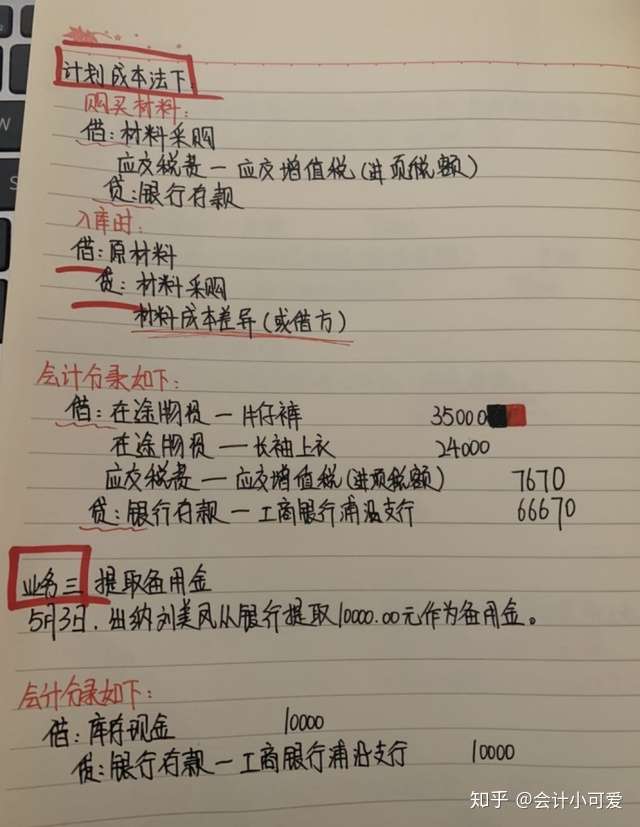 计划成本法下:
购买材料:
借:材料采购
应交税费—应交增值税(进项税额)
贷:银行存款
入库时:
借:原材料
贷:材料采购
材料成本差异(或借方)
会计分录如下:
借:在途物资—牛仔裤 35000
在途物资—长袖上衣 24000
应交税费—应交增值税(进项税额) 7670
贷:银行存款—工商银行浦沿支行 66670
业务三 提取备用金
5月3日,出纳刘美凤从银行提取10000.00元作为备用金。
会计分录如下:
借:库存现金 10000
贷:银行存款—工商银行浦沿支行 10000
知乎 @会计小可爱